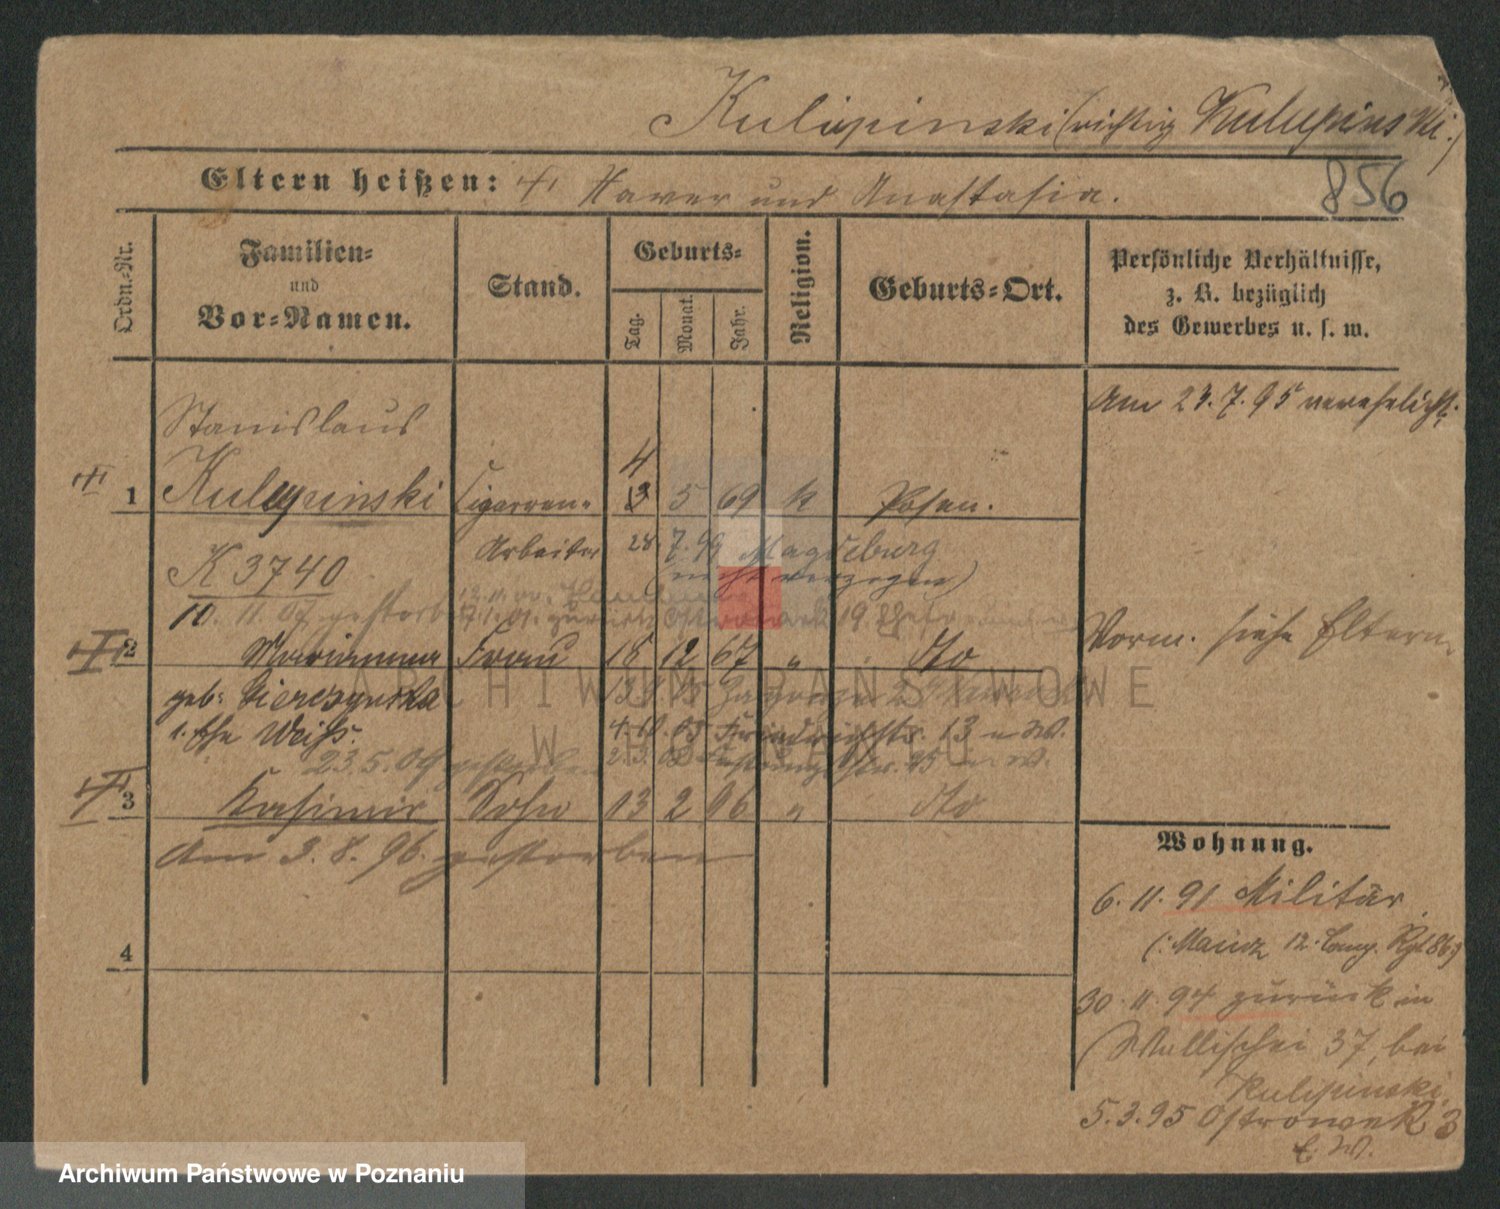 Kulipinski (richtig Kulupinski.)
Eltern heißen: Xaver und Anastasia.
856
Ordn.-Nr.
Familien-
und
Vor-Namen.
Stand.
Geburts-
Tag.
Monat.
Jahr.
Religion.
Geburts-Ort.
Persönliche Verhältnisse,
z. B. bezüglich
des Gewerbes u. s. w.
Am 23.7.95 verehelicht.
Stanislaus
4
1 Kulupinski Cigarren- 3 5 69 k Posen.
Arbeiter 28. 7. 99 Magdeburg
K 3740 (nicht verzogen)
10. 11. 07 gestorben
zurück 19
Vorm. siehe Eltern
2 Marianna Frau 18 12 67 " dto
geb.
1. Ehe Weiß. 13 u. W.
23.5.09 gestorben
3 Kasimir Sohn 13 2 96 " dto
Am 3. 8. 96. gestorben
4
Wohnung.
6. 11. 91 Militär
(: Mainz 12. Comp. Rgt 86 :)
30. 11. 94 zurück in
Wallischei 37, bei
Kulipinski
5.3.95 Ostrowek 3
E. W.
ARCHIWUM PAŃSTWOWE
W POZNANIU
Archiwum Państwowe w Poznaniu